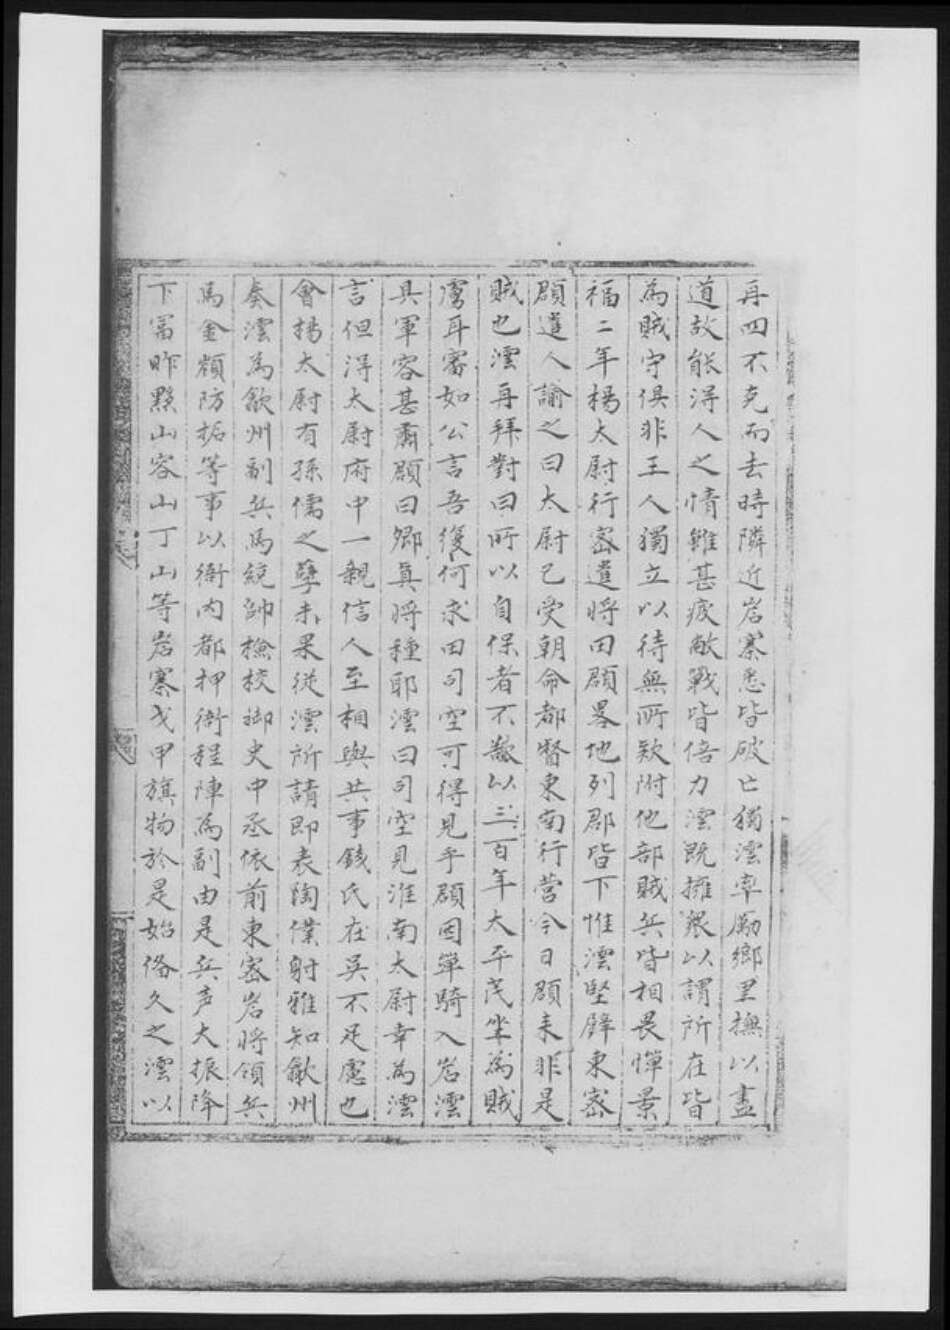 再四不克而去時隣近岩寨悉皆破亡獨澐率勵鄉里撫以盡
道故能得人之情雖甚疲敝戰皆倍力澐既擁衆以謂所在皆
為賊守俱非王人獨立以待無所欵附他部賊兵皆相畏憚景
福二年楊太尉行密遣將田頵畧地列郡皆下惟澐堅壁東密
頵遣人諭之曰太尉已受朝命都督東南行营今日頵来非是
賊也澐再拜對曰所以自保者不 以三百年太平 坐為賊
虜耳審如公言吾復何求田司空可得見乎頵因单騎入岩澐
具軍容甚肅頵曰鄉真將種耶澐曰司空見淮南太尉幸為澐
言但得太尉府中一親信人至相與共事錢氏在吴不足慮也
會楊太尉有孫儒之孽未果從澐所請即表陶僕射雅知歙州
奏澐為歙州副兵馬統帥檢校御史中丞依前東密岩將領兵
馬金額防拓等事以衙内都押衙程陣為副由是兵声大振降
下 昨黟山容山丁山等岩寨戈甲旗物於是始俻久之澐以